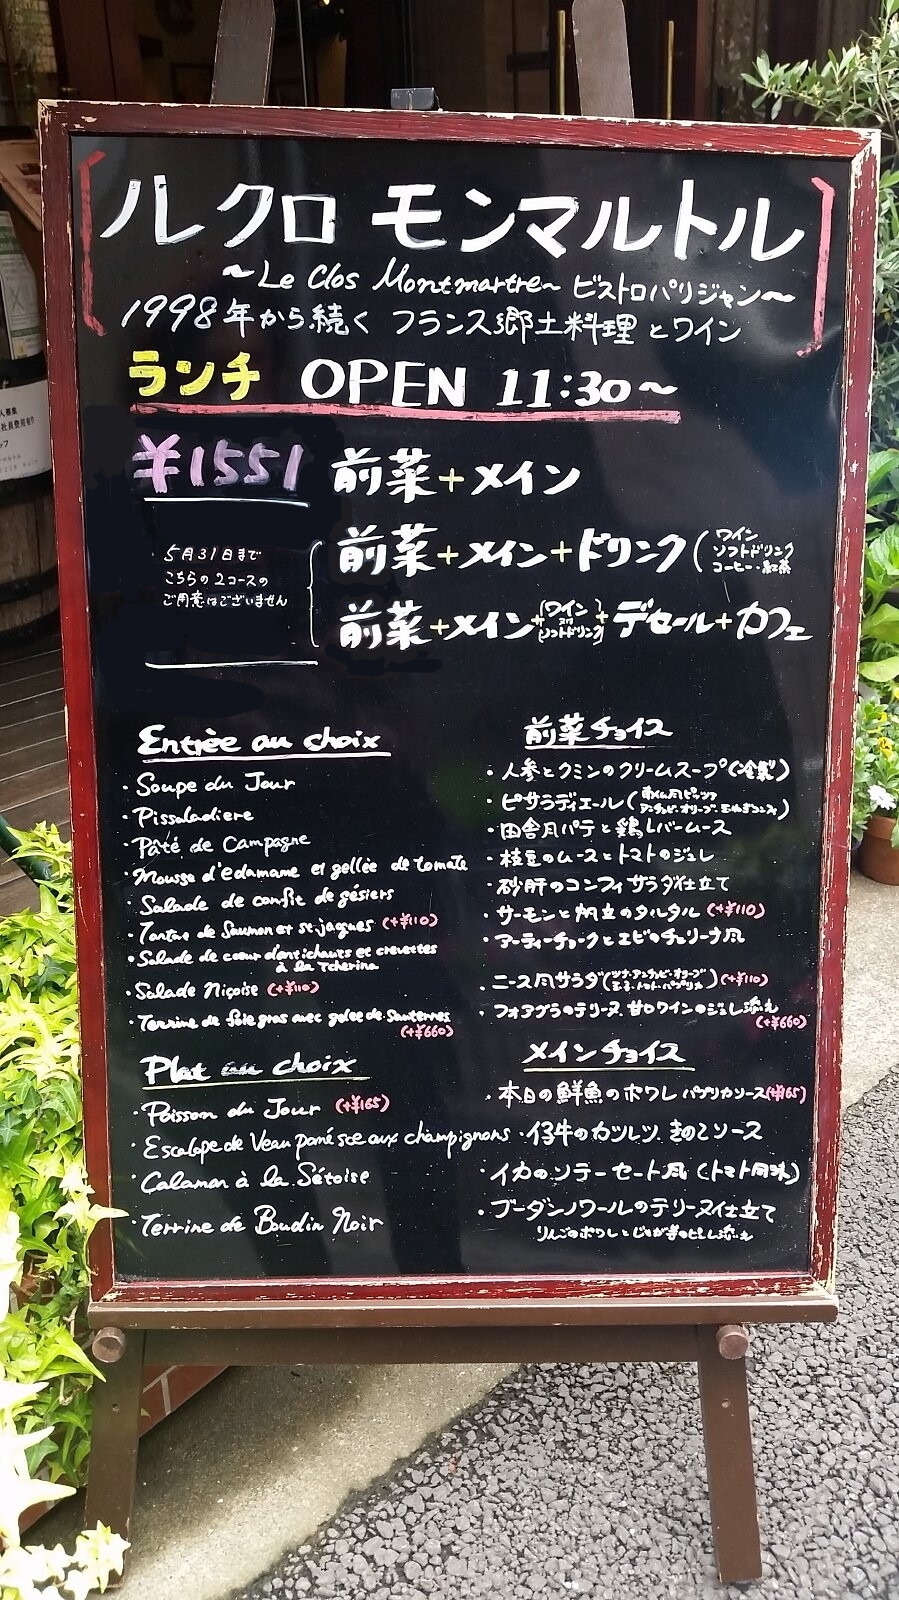 ル クロ モンマルトル
~Le Clos Montmartre~ ビストロパリジャン~
1998年から続く フランス郷土料理とワイン
ランチ OPEN 11:30~
¥1551 前菜+メイン
5月31日まで
こちらの2コースの
ご用意はございません
前菜+メイン+ドリンク(ワイン
ソフトドリンク
コーヒー・紅茶
前菜+メイン+(ワイン
ソフトドリンク)+デセール+カフェ
Entrée au choix
・Soupe du Jour
・Pissaladiere
・Pâté de Campagne
・Mousse d'edamame et gelée de tomate
・Salade de confit de gésiers
・Tartar de Saumon et st-jaques (+¥110)
・Salade de cœur d'artichauts et crevettes
à la Tcherina
・Salade Niçoise (+¥110)
・Terrine de foie gras avec gelée de Sauternes
(+¥660)
Plat au choix
・Poisson du Jour (+¥165)
・Escalope de Veau pané sce aux champignons
・Calamar à la Sétoise
・Terrine de Boudin Noir
前菜チョイス
・人参とクミンのクリームスープ(冷製)
・ピサラディエール(南仏風ピッツァ
アンチョビ・オリーブ・玉ねぎコンフィ)
・田舎風パテと鶏レバームース
・枝豆のムースとトマトのジュレ
・砂肝のコンフィ サラダ仕立て
・サーモンと帆立のタルタル (+¥110)
・アーティーチョークとエビのチェリーナ風
・ニース風サラダ(ツナ・アンチョビ・オリーブ
玉子・トマト・パプリカ)(+¥110)
・フォアグラのテリーヌ 甘口ワインのジュレ添え
(+¥660)
メインチョイス
・本日の鮮魚のポワレ パプリカソース(+¥165)
・仔牛のカツレツ きのこソース
・イカのソテー セート風 (トマト風味)
・ブーダンノワールのテリーヌ仕立て
りんごのポワレとじゃが芋のピューレ添え